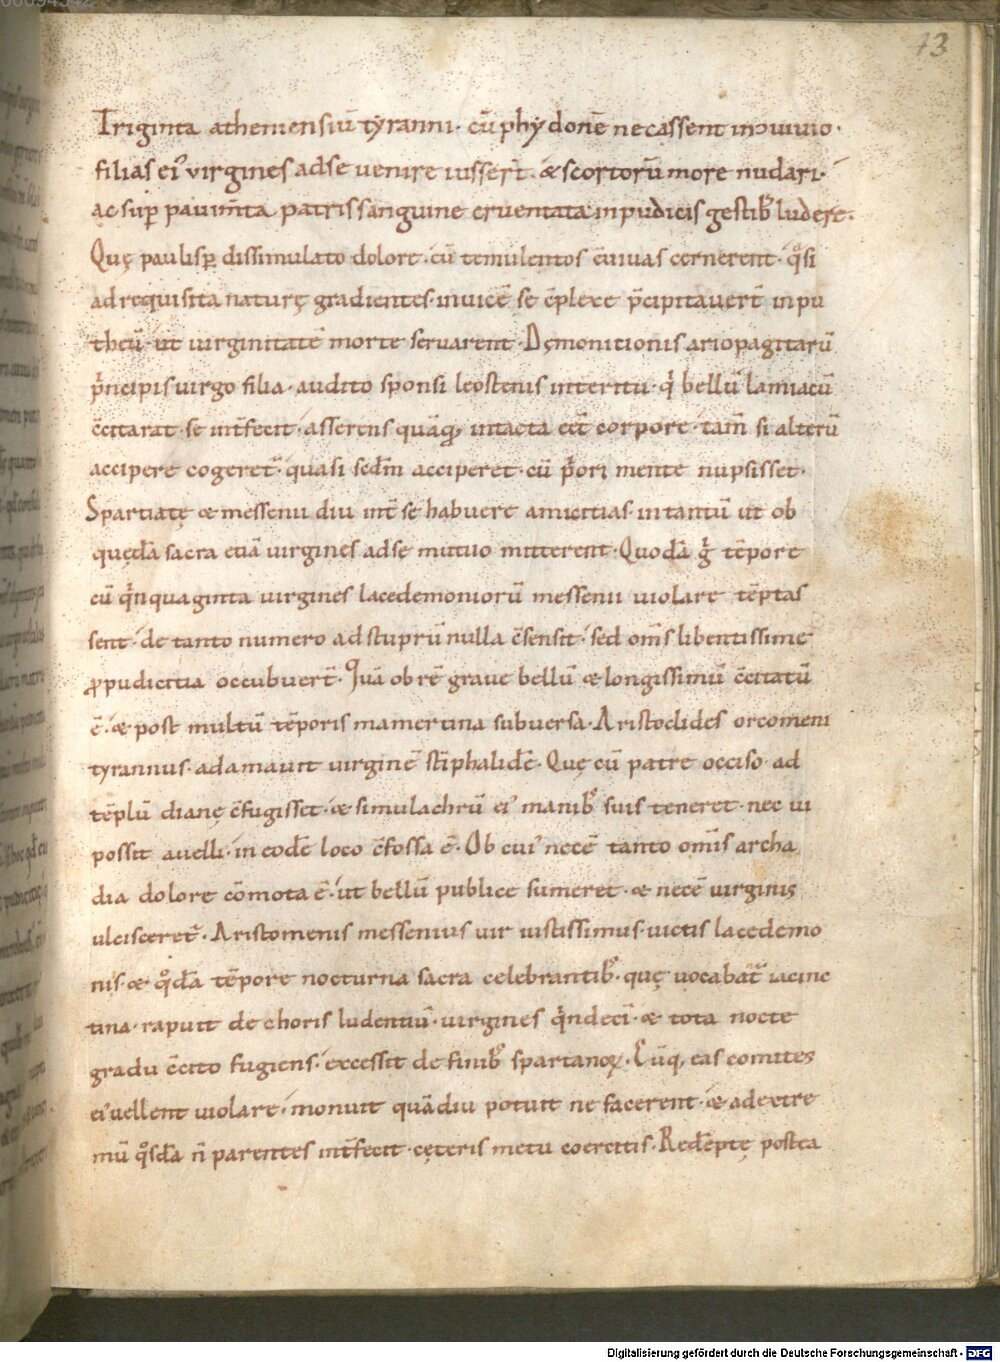 43
Triginta atheniensiū tyranni· cū phydonē necassent in ɔuiuio·
filias ei᾽ virgines ad se uenire iusser̄t· & scortorū more nudari·
ac sup̄ pauim̄ta patris sanguine cruentata inpudicis gestib; ludere·
Quę paulisp̄ dissimulato dolore· cū temulentos c̄uiuas cernerent· qͣsi
ad requisita naturę gradientes· inuicē se c̄plexe p̄cipitauer̄t in pu
theū· ut uirginitatē morte seruarent· Dęmonitionis ariopagitarū
pͥncipis uirgo filia· audito sponsi leostenis interitu· qͥ bellū lamiacū
c̄citarat· se int̄fecit· asserens quāqͣ intacta eēt corpore· tam̄ si alterū
accipere cogeret᷑· quasi scdm̄ acciperet· cū pͥori mente nupsisset·
Spartiatę & messenii diu int̄ se habuere amicitias· in tantū ut ob
quędā sacra etiā uirgines ad se mutuo mitterent· Quodā gͥ tēpore
cū qͥnquaginta uirgines lacedemoniorū messenii uiolare tēptas
sent· de tanto numero ad stuprū nulla c̄sensit· sed om̄s libentissime
ꝓ pudicitia occubuer̄t· Quā ob rē graue bellū & longissimū c̄citatū
ē· & post multū tēporis mamertina subuersa· Aristoclides orcomeni
tyrannus· adamauit uirginē stīphalidē· Quę cū patre occiso· ad
tēplū dianę c̄fugisset· & simulachrū ei᾽ manib; suis teneret· nec ui
possit auelli· in eodē loco c̄fossa ē· Ob cui᾽ necē tanto om̄is archa
dia dolore cōmota ē· ut bellū publice sumeret· & necē uirginis
ulcisceret᷑· Aristomenis messenius uir iustissimus· uictis lacedemo
niis· & qͦdā tēpore nocturna sacra celebrantib;· quę uocabāt᷑ iacinc
tina· rapuit de choris ludentiū· uirgines qͥndecī· & tota nocte
gradu c̄cito fugiens· excessit de finib; spartanoꝝ· Cūq, eas comites
ei᾽ uellent uiolare· monuit quādiu potuit ne facerent· & ad extre
mū qͦsdā n̄ parentes int̄fecit· cęteris metu coercitis· Redēptę postea
Digitalisierung gefördert durch die Deutsche Forschungsgemeinschaft - DFG